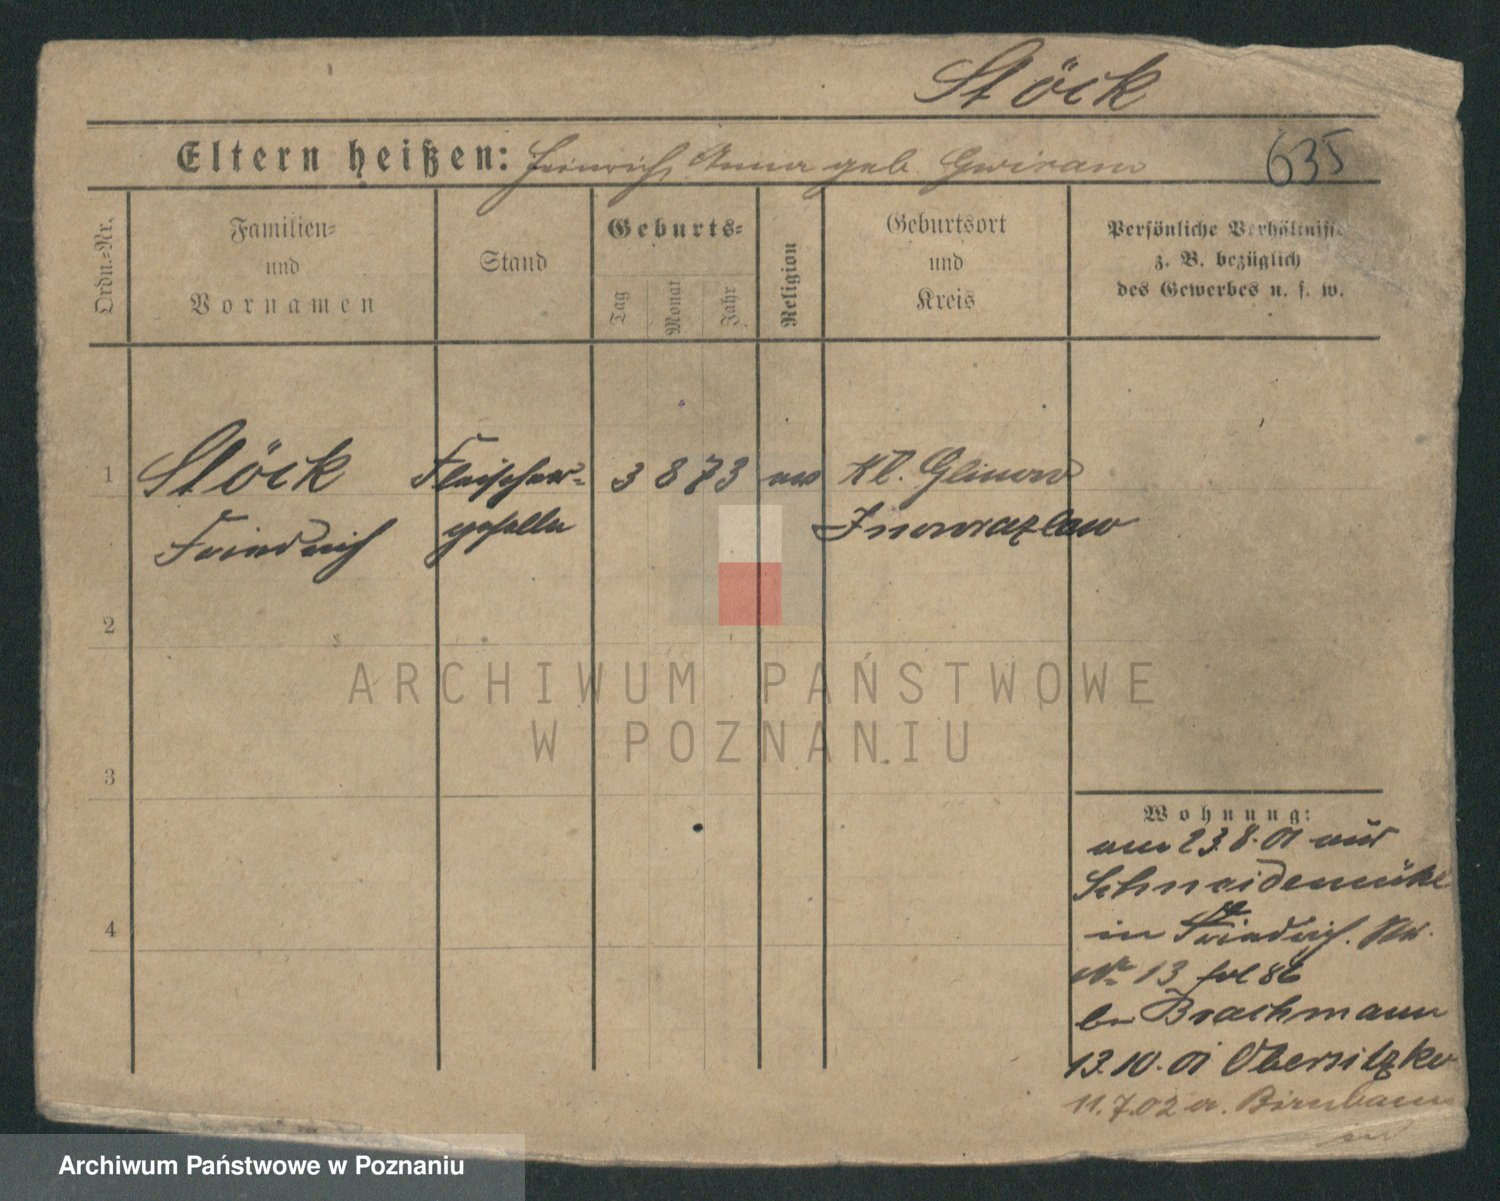 Stöck
Eltern heißen: Heinrich, Anna geb.
635
Ordn.-Nr.
Familien-
und
Vornamen
Stand
Geburts-
Tag
Monat
Jahr
Religion
Geburtsort
und
Kreis
Persönliche Verhältnisse
z. B. bezüglich
des Gewerbes u. s. w.
1
Stöck
Friedrich
Fleischer-
geselle
3 8 73
ev
Kl. Glinow
Inowrazlaw
2
3
4
Wohnung:
am 23.8.01 aus
Schneidemühl
in Friedrich.
No 13 fol 86
bei Brachmann
13.10.01 Obersitzko
11.7.02 a. Birnbaum
ARCHIWUM PAŃSTWOWE
W POZNANIU
Archiwum Państwowe w Poznaniu